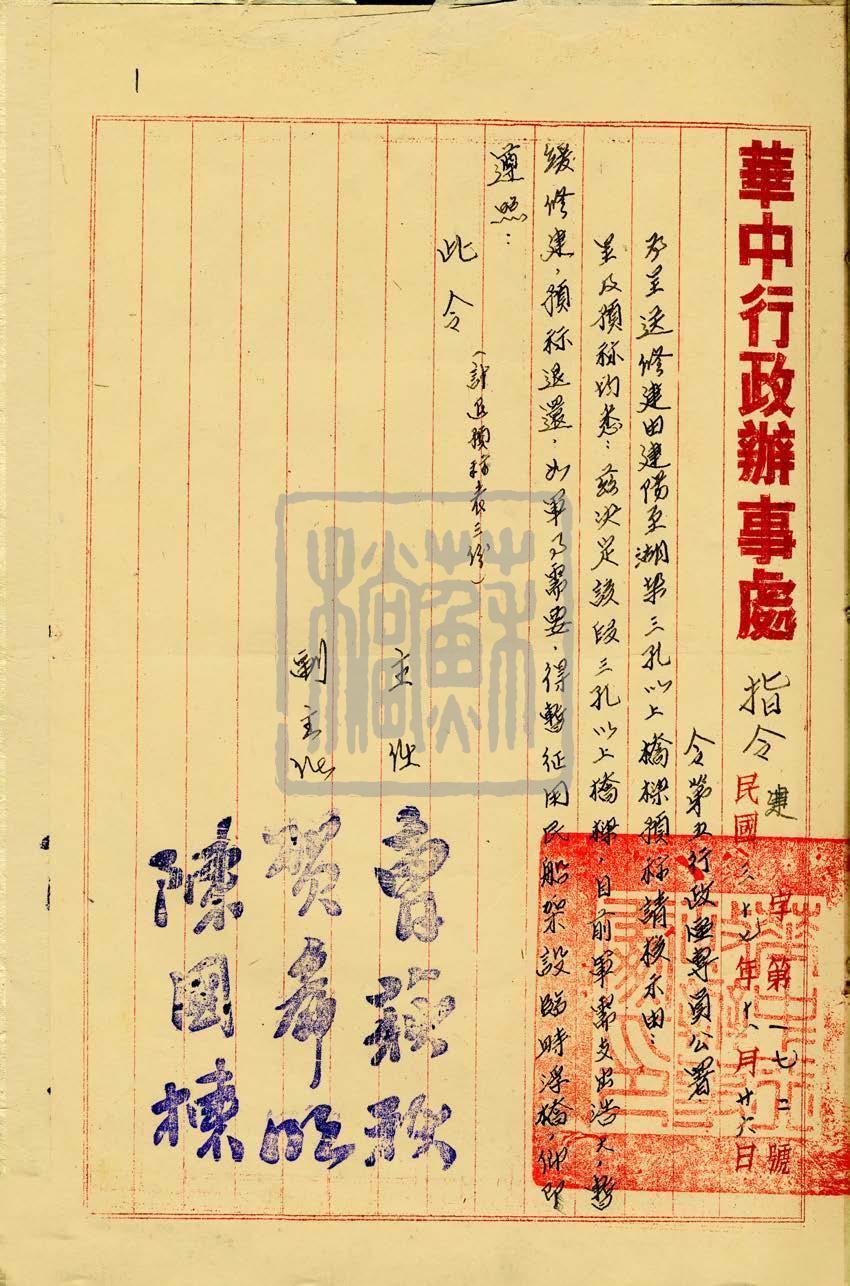 華中行政辦事處 指令
建字第一七二號
民國三十七年十一月廿六日
令第五行政區專員公署
為呈送修建由建陽至湖垛三孔以上橋樑預祘請核示由：
呈及預祘均悉：茲決定該段三孔以上橋樑，目前軍需支出浩大，暫
緩修建，預祘退還，如軍事需要，得暫征用民船架設臨時浮橋，仰即
遵照：
此令
（計退預祘表三份）
主任 曹荻秋
副主任 賀希明
陳國棟